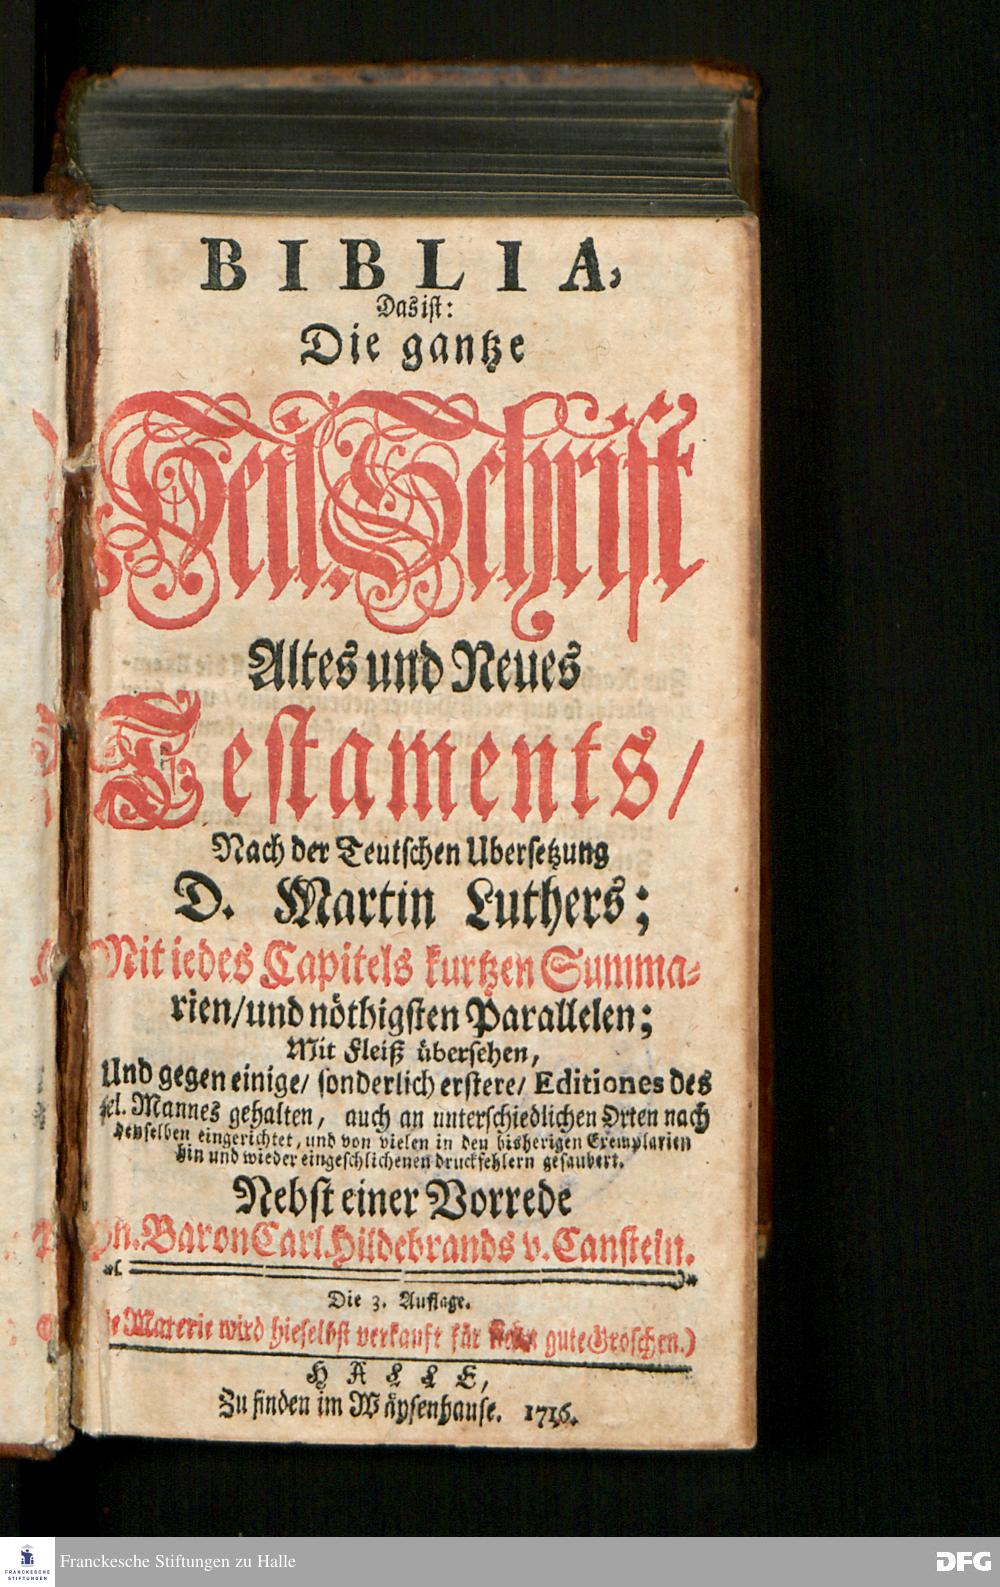 BIBLIA,
Das ist:
Die gantze
Heil. Schrift
Altes und Neues
Testaments/
Nach der Teutschen Ubersetzung
D. Martin Luthers;
Mit iedes Capitels kurtzen Summa-
rien/und nöthigsten Parallelen;
Mit Fleiß übersehen,
Und gegen einige/ sonderlich erstere/ Editiones des
sel. Mannes gehalten, auch an unterschiedlichen Orten nach
denselben eingerichtet, und von vielen in den bisherigen Exemplarien
hin und wieder eingeschlichenen druckfehlern gesaubert.
Nebst einer Vorrede
Hn. Baron Carl Hildebrands v. Canstein.
Die 3. Auflage.
Materie wird hieselbst verkauft für gute Groschen.)
HALLE,
Zu finden im Wäysenhause. 1716.
FRANCKESCHE
STIFTUNGEN
Franckesche Stiftungen zu Halle
DFG